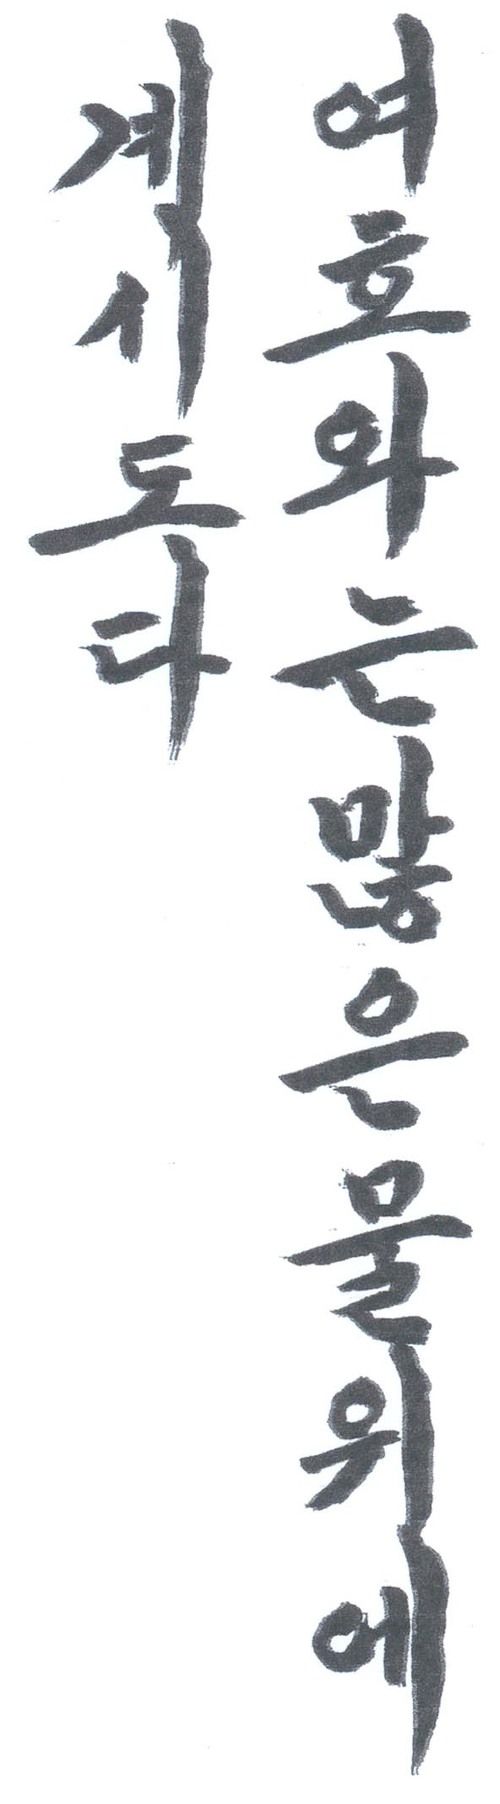 여호와는많은물위에
계시도다